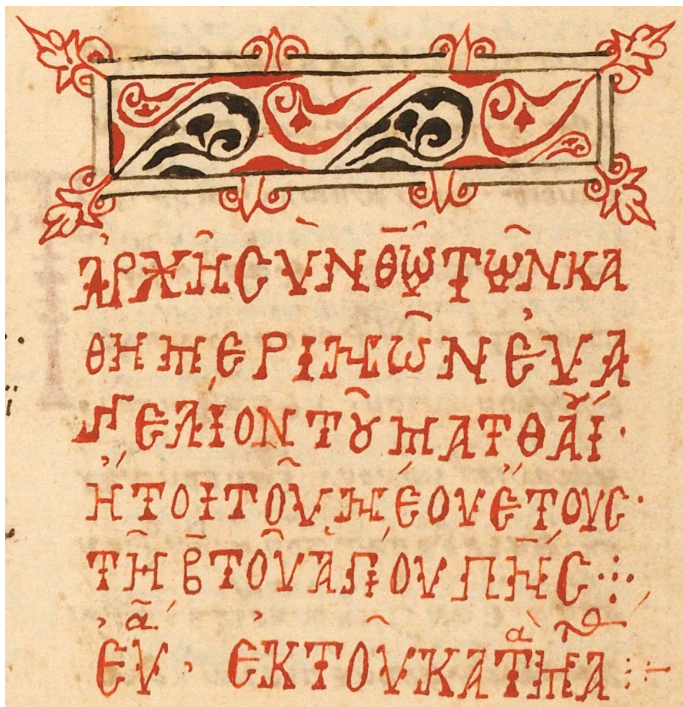 ἀρχῆ σὺν θ̅ω̅ τῶν κα
θημερινῶν ἐυα
γγελίον τοῦ ματθαΐ·
ἤτοι τοῦ νέου ἔτους·
τῆ β̅ τοῦ ἁγίου πν̅ς
ἐυ α̅· ἐκ τοῦ κατὰ ματθ